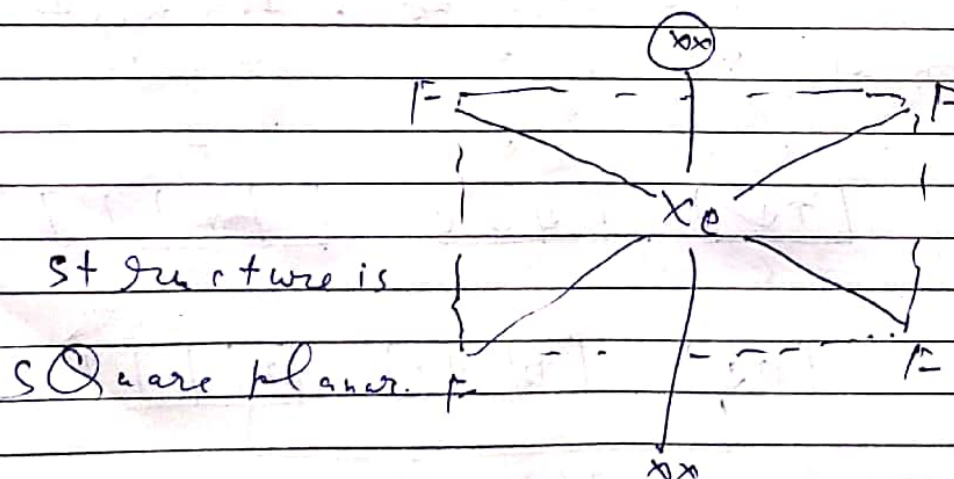 xx
F F
Xe
structure is
sQuare planar. F F
xx